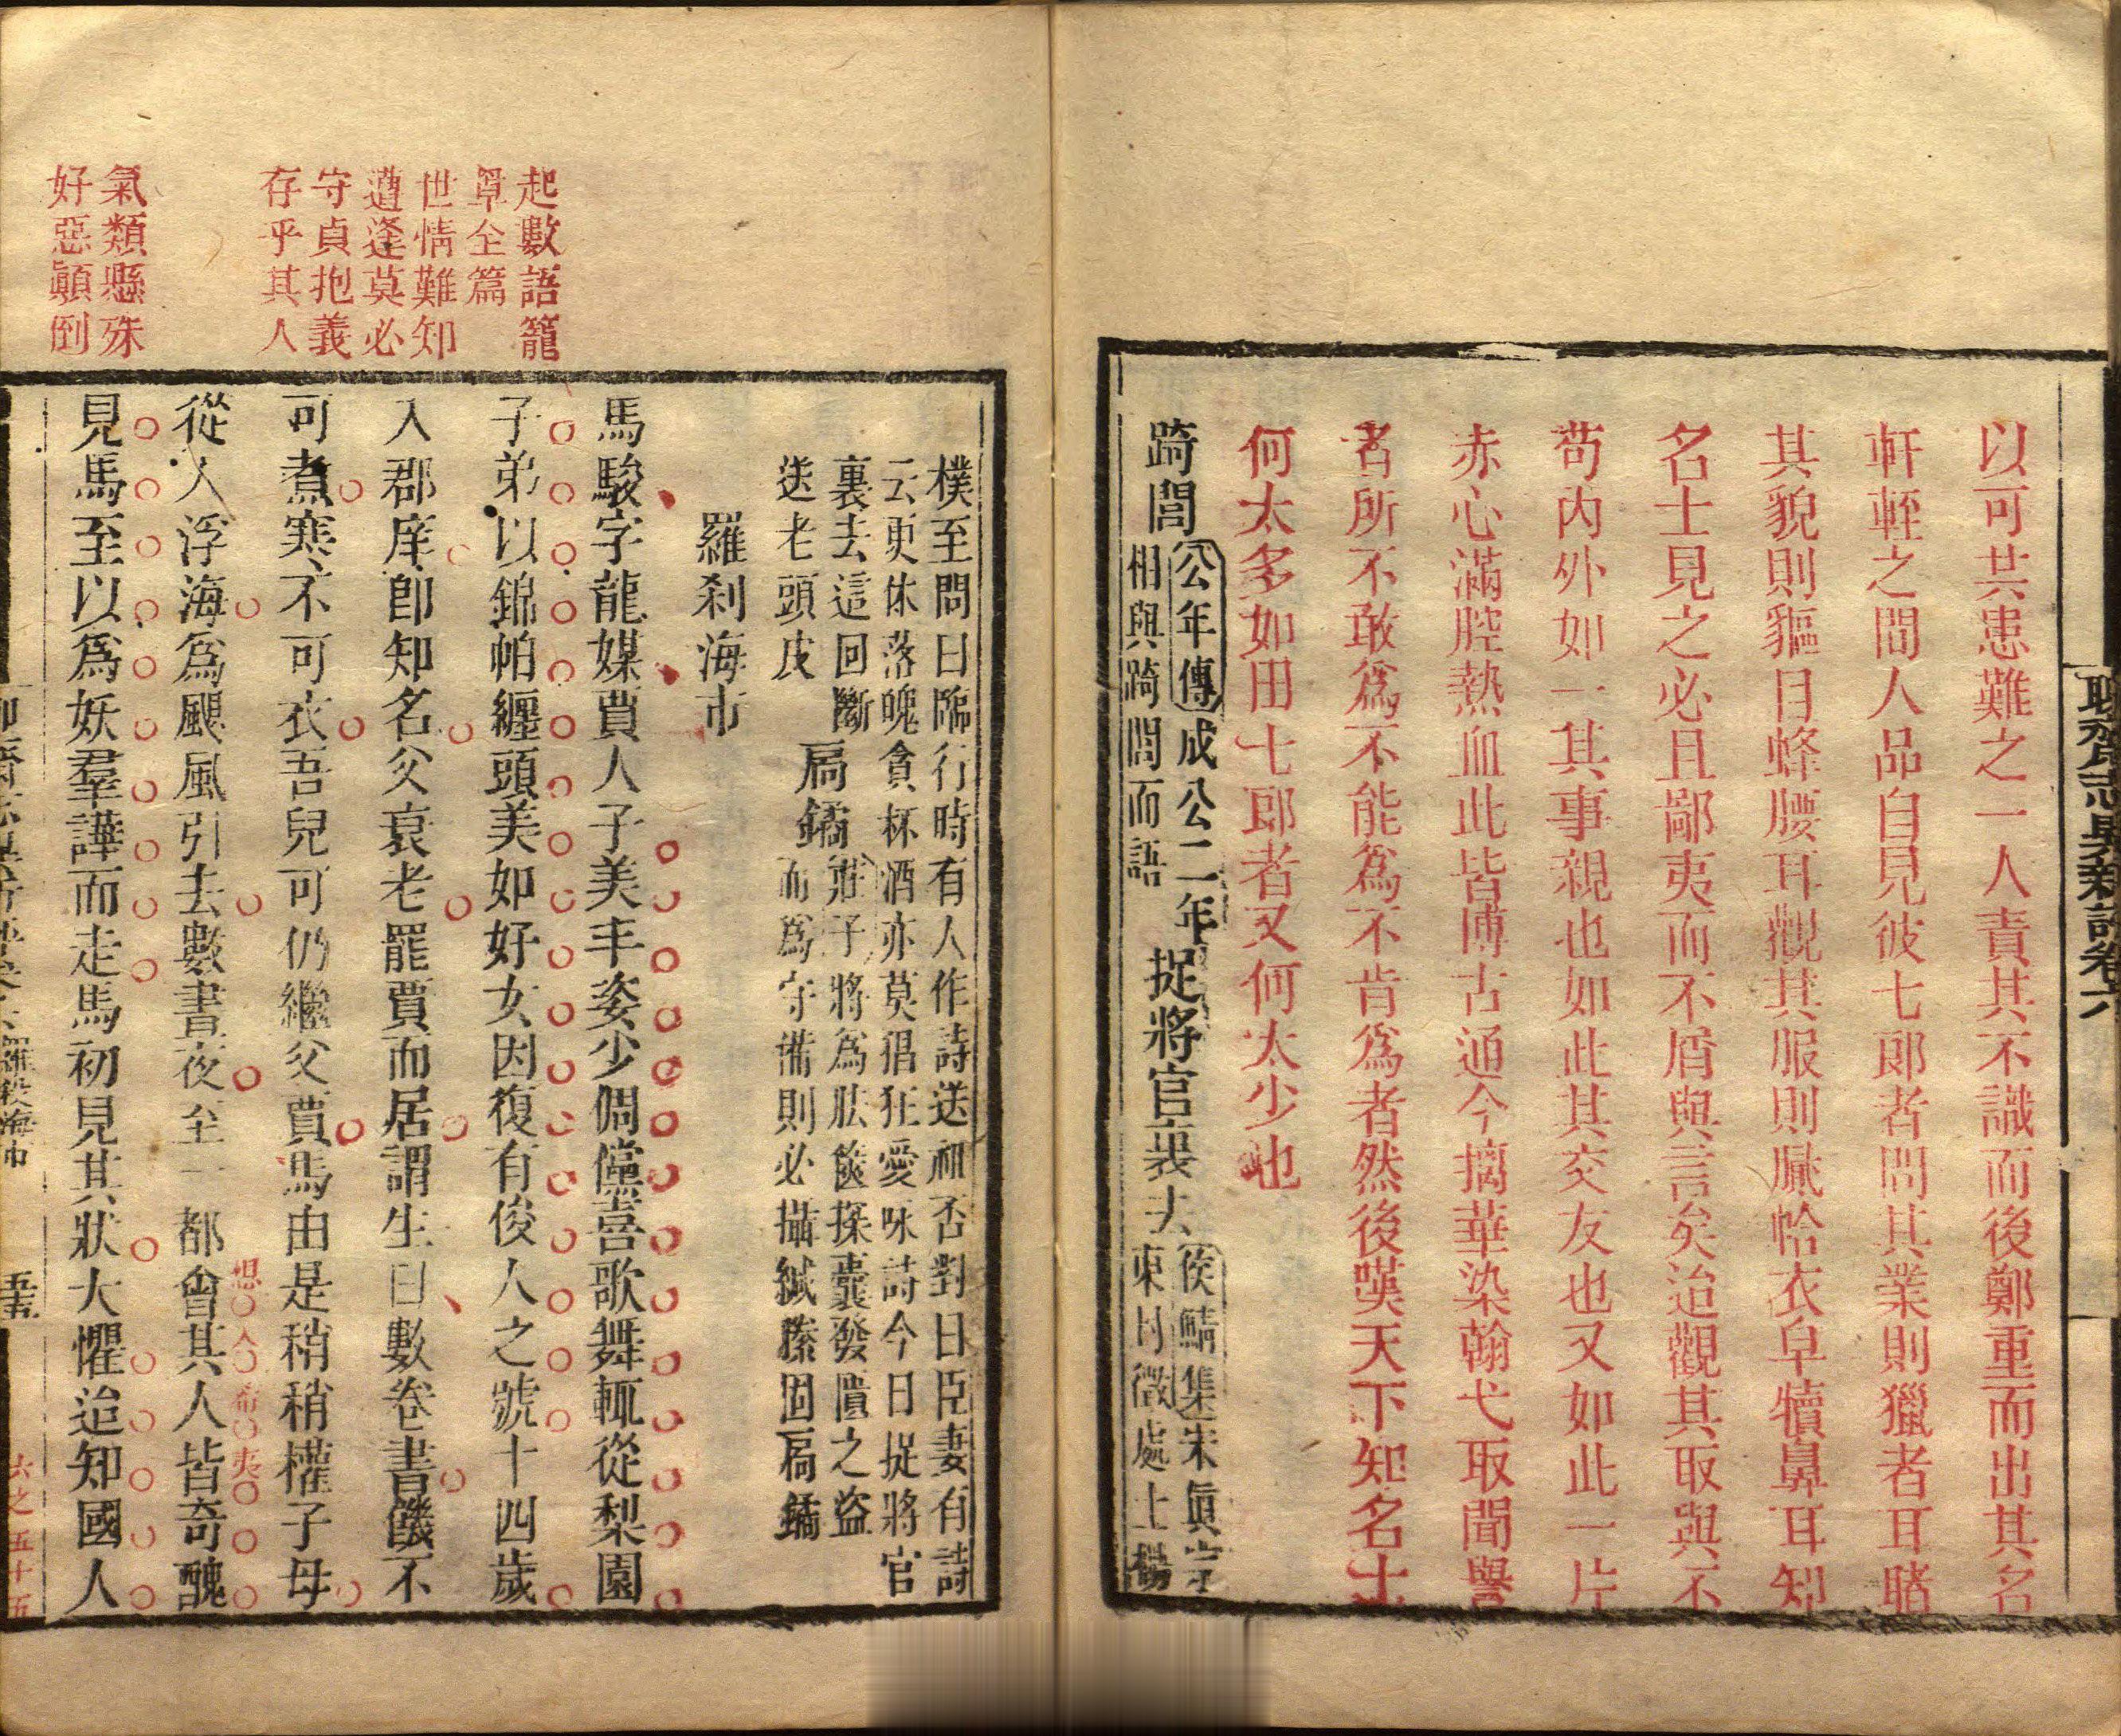 聊齋志異新評卷六
以可共患難之一人責其不識而後鄭重而出其名
軒輊之間人品自見彼七郎者問其業則獵者耳睹
其貌則貙目蜂腰耳觀其服則膩帢衣皁犢鼻耳知
名士見之必且鄙夷而不屑與言矣迨觀其取與不
苟內外如一其事親也如此其交友也又如此一片
赤心滿腔熱血此皆博古通今摛華染翰弋取聞譽
者所不敢爲不能爲不肯爲者然後嘆天下知名士
何太多如田七郎者又何太少也
踦閭
公年傳成公二年
相與踦閭而語
捉將官裏去
侯鯖集宋眞宗
東封徵處士楊
樸至問曰臨行時有人作詩送卿否對曰臣妻有詩
云更休落魄貪杯酒亦莫猖狂愛咏詩今日捉將官
裏去這回斷
送老頭皮
扃鐍
莊子將爲胠篋探囊發匱之盜
而爲守備則必攝緘縢固扃鐍
羅刹海市
馬駿字龍媒賈人子美丰姿少倜儻喜歌舞輒從梨園
子弟以錦帕纏頭美如好女因復有俊人之號十四歲
入郡庠卽知名父衰老罷賈而居謂生曰數卷書饑不
可煮寒不可衣吾兒可仍繼父賈馬由是稍稍權子母
從人浮海爲颶風引去數晝夜至一都會其人皆奇醜
見馬至以爲妖羣譁而走馬初見其狀大懼迨知國人
起數語籠
罩全篇
世情難知
遭逢莫必
守貞抱義
存乎其人
氣類懸殊
好惡顚倒
羅刹海市
六之五十五